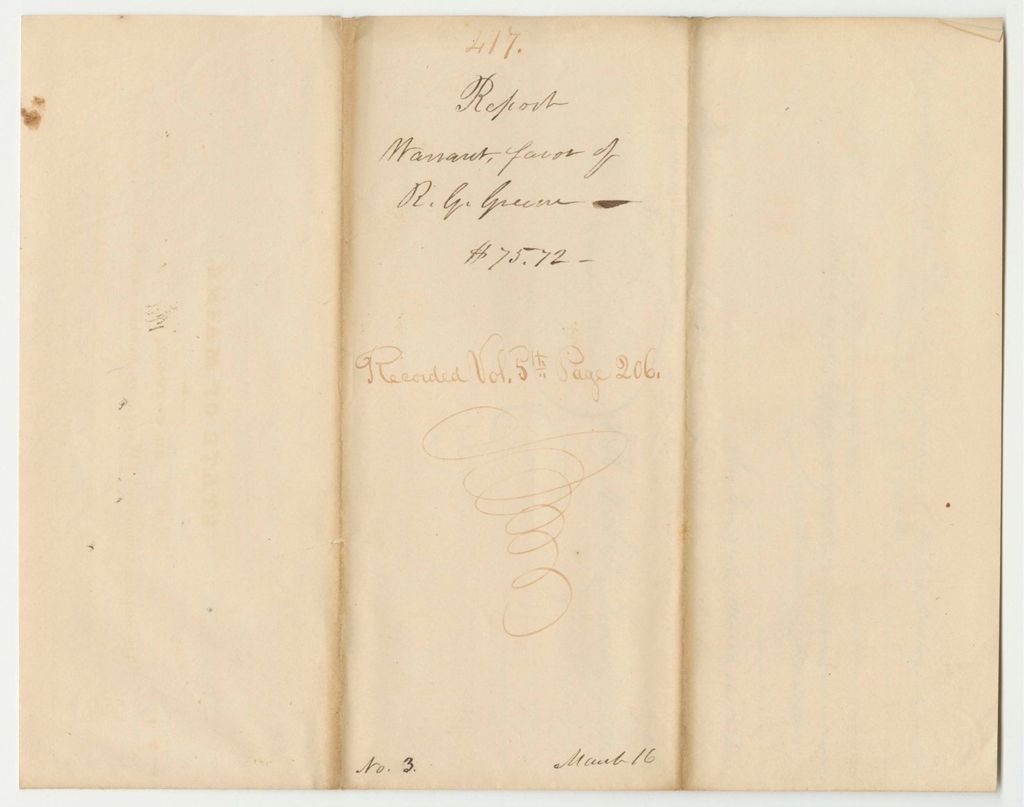 417.
Report
Warrant, favor of
R. G. Greene —
$75.72 –
Recorded Vol. 5th Page 206.
No. 3.
March 16
STATE OF MAINE